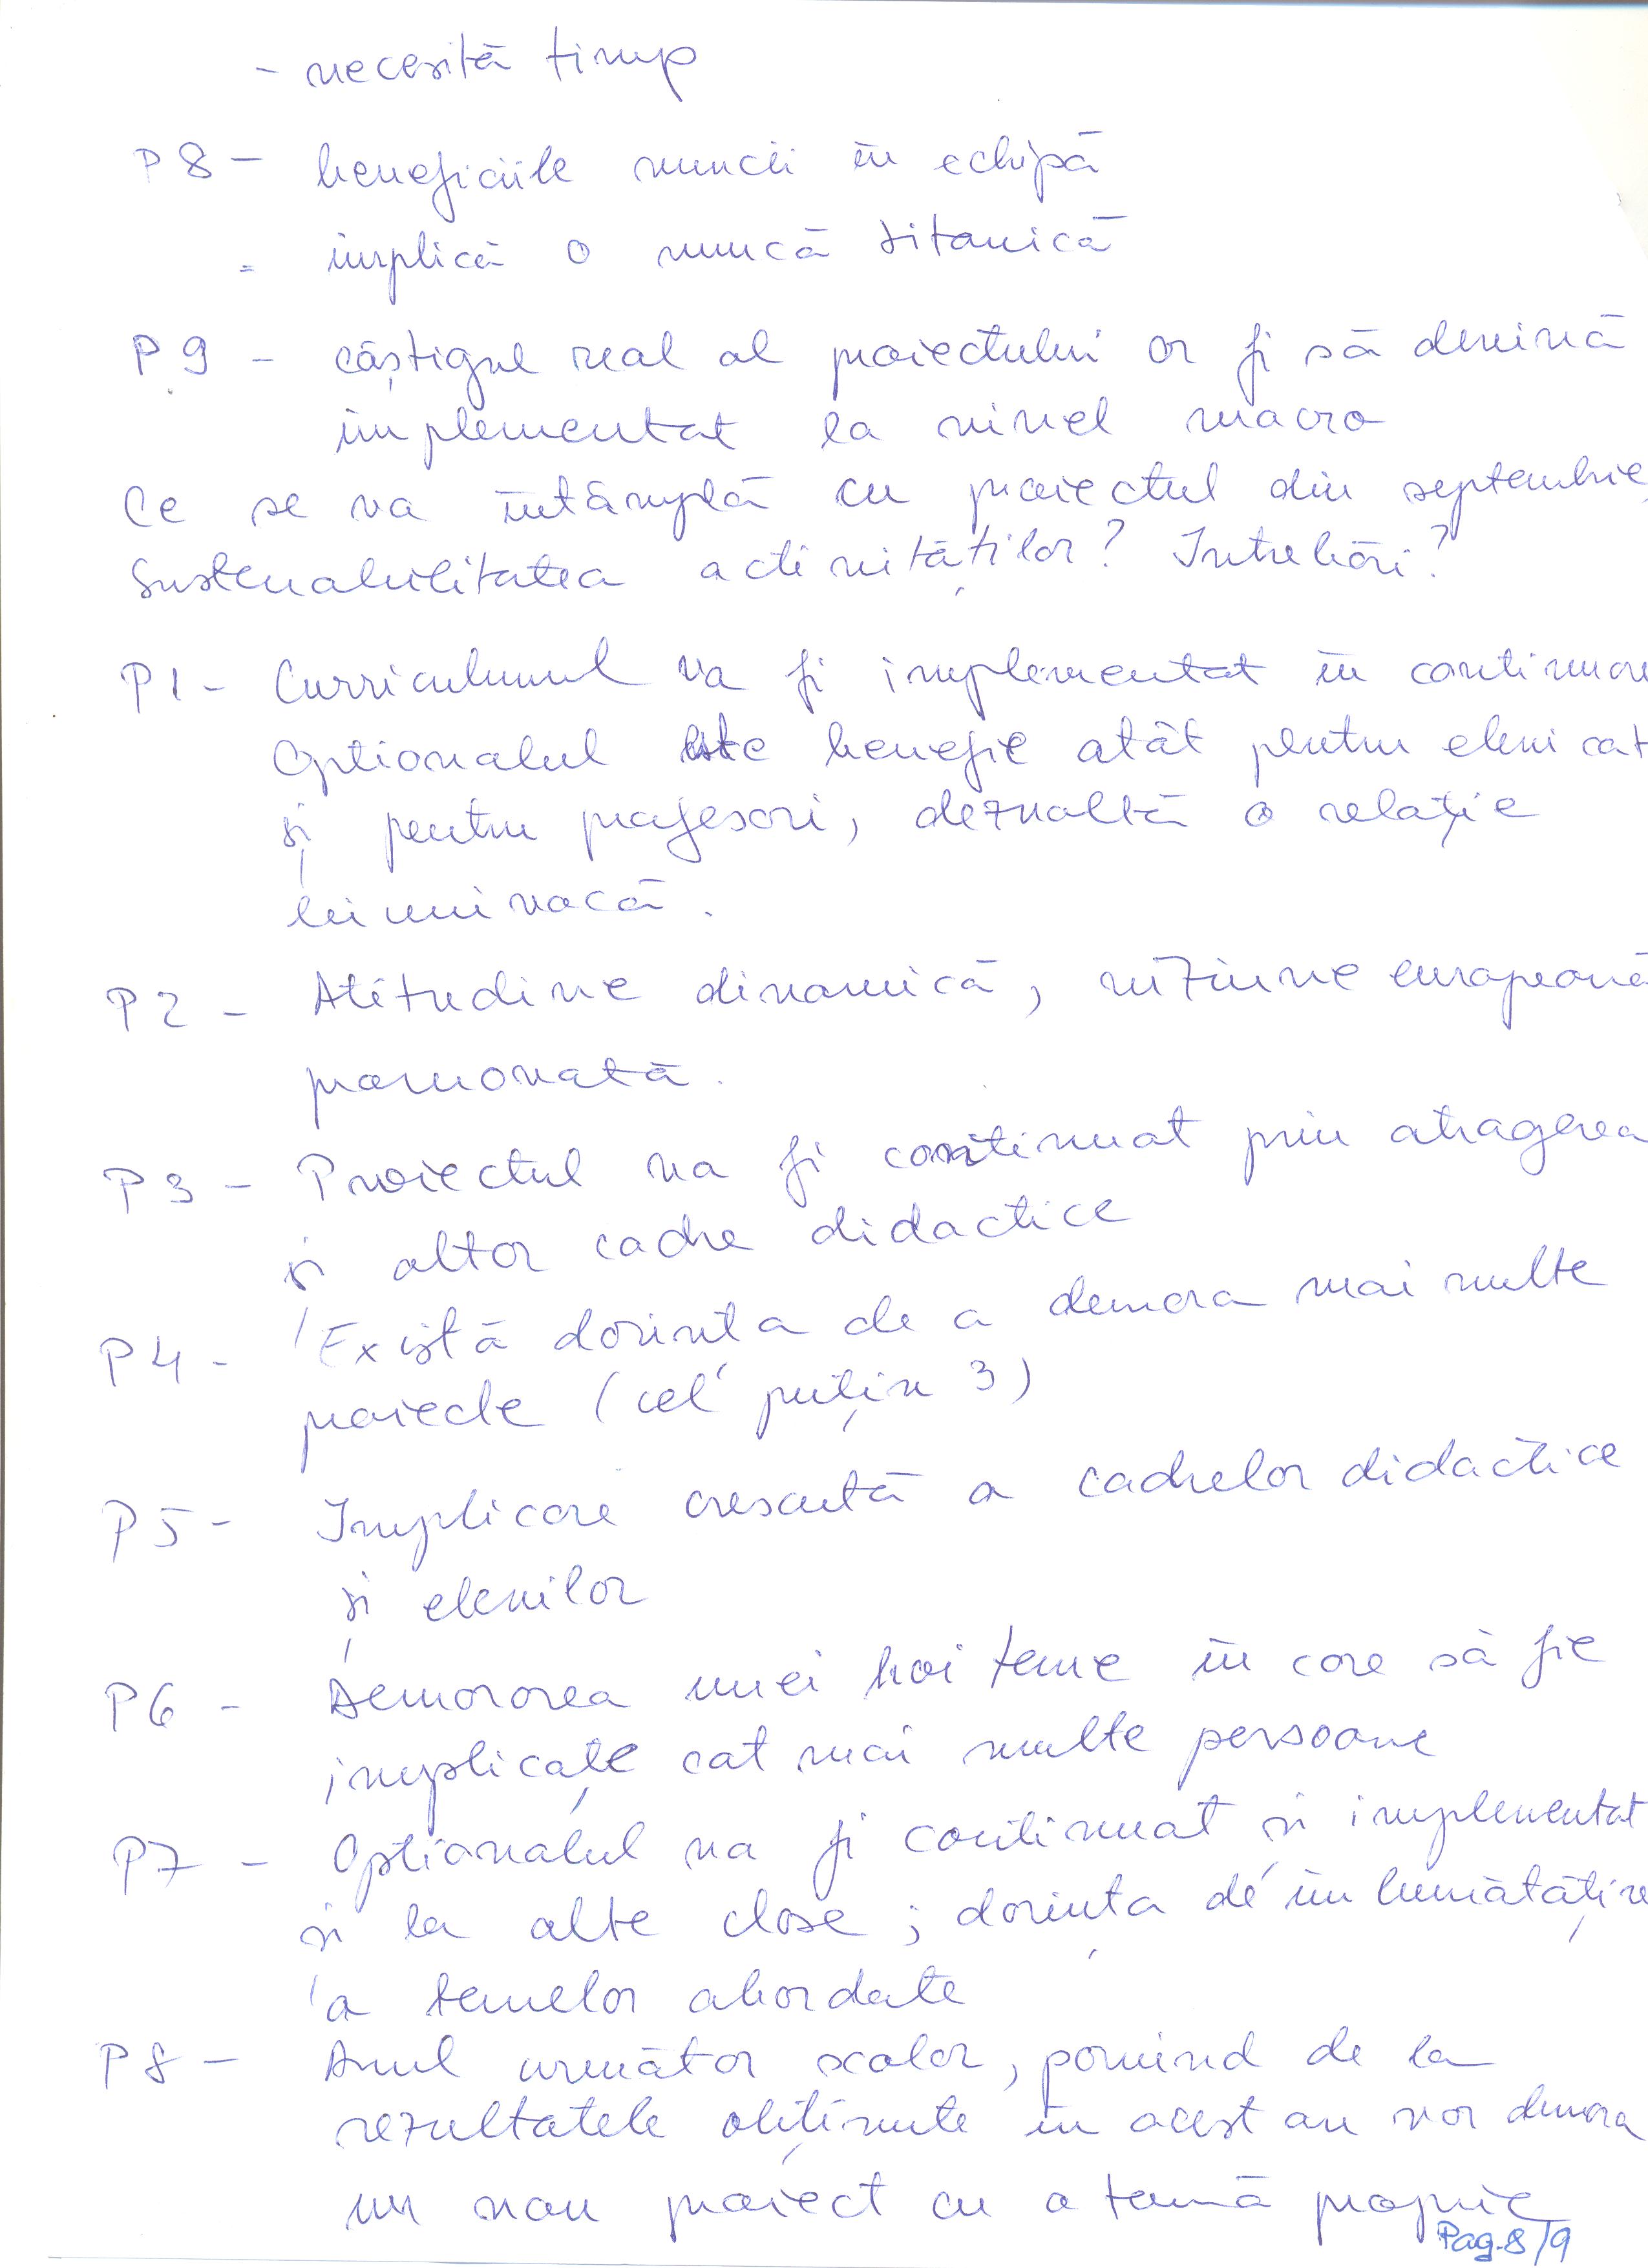 - necesită timp
P8 - beneficiile muncii în echipă
- implică o muncă titanică
P9 - câștigul real al proiectului ar fi să devină
implementat la nivel macro
Ce se va întâmplă cu proiectul din septembrie,
Sustenabilitatea activităților? Întrebări?
P1 - Curriculumul va fi implementat în continuare
Optionalul este benefic atât pentru elevi cat
și pentru profesori, dezvoltă o relație
biunivocă.
P2 - Atitudine dinamică, viziune europeană
P3 - Proiectul va fi continuat prin atragerea
și altor cadre didactice
P4 - Există dorința de a demara mai multe
proiecte (cel puțin 3)
P5 - Implicare crescută a cadrelor didactice
și elevilor
P6 - Demararea unei noi teme în care să fie
implicate cat mai multe persoane
P7 - Optionalul va fi continuat și implementat
și la alte clase; dorința de îmbunătățire
a temelor abordate
P8 - Anul următor școlar, pornind de la
rezultatele obținute în acest an vor demara
un nou proiect cu o temă proprie
Pag. 8/9